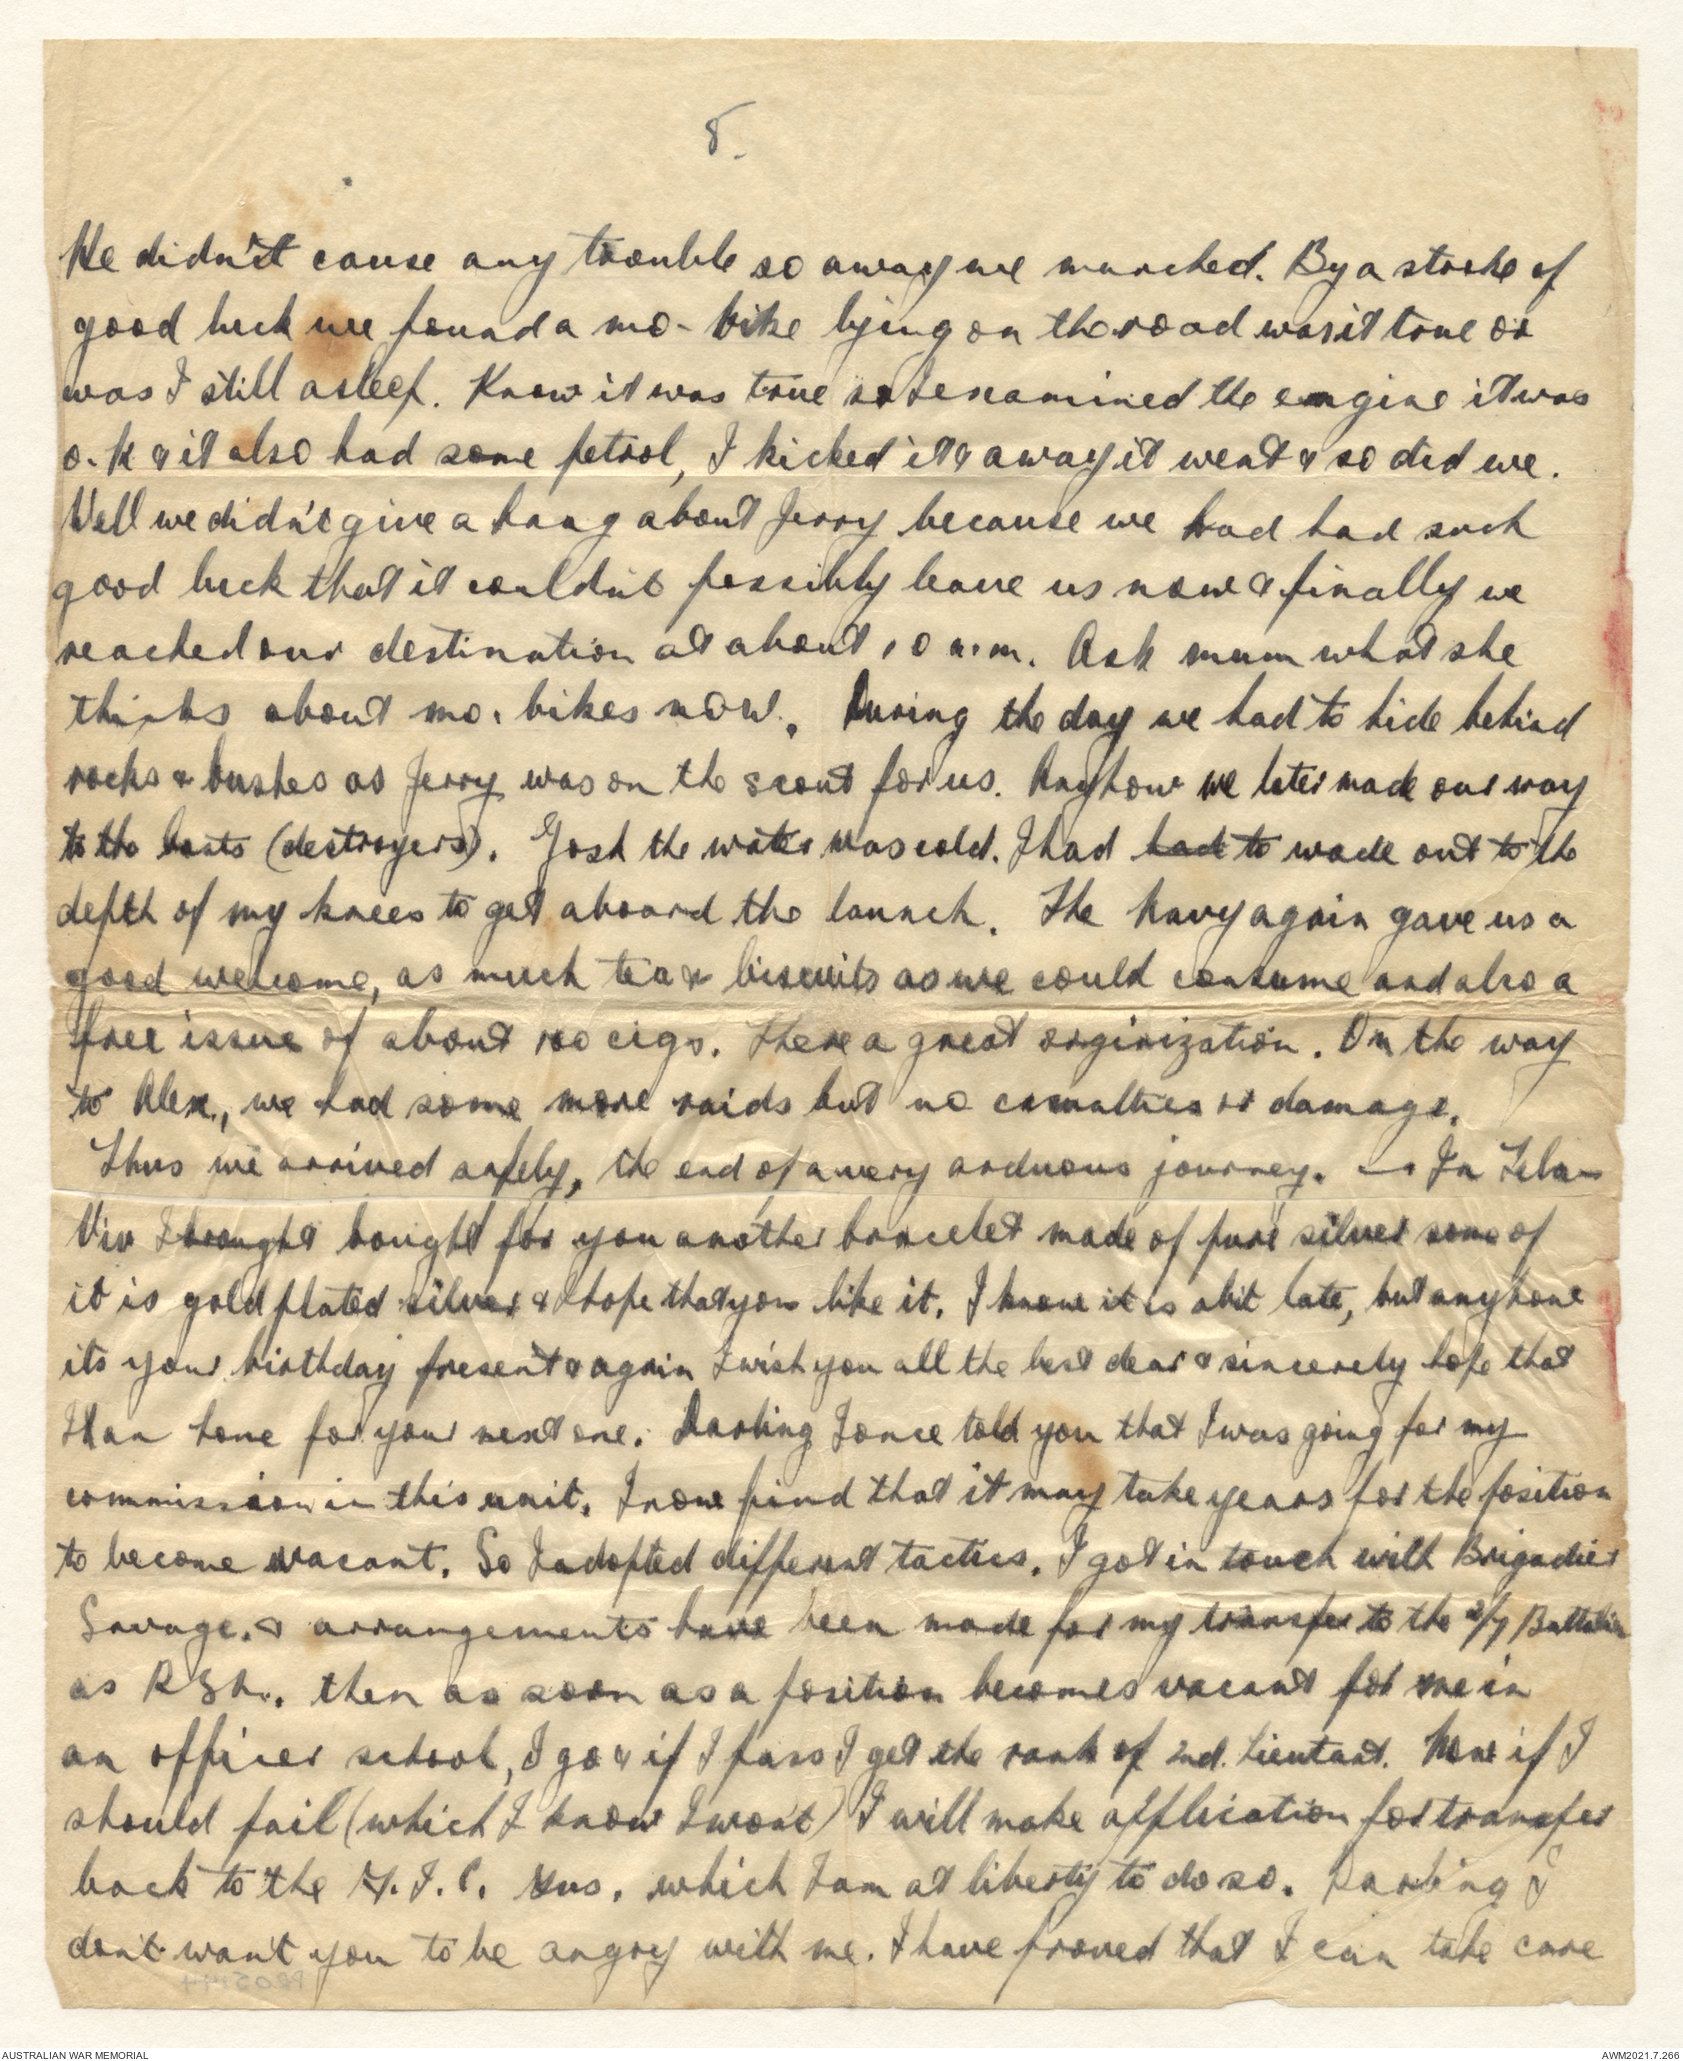 8.
He didn't cause any trouble so away we marched. By a stroke of
good luck we found a mo-bike lying on the road was it true or
was I still asleep. Know it was true so I examined the engine it was
o.k & it also had some petrol, I kicked it & away it went & so did we.
Well we didn't give a hang about Jerry because we had had such
good luck that it couldn't possibly leave us now & finally we
reached our destination at about 10 a.m. Ask mum what she
thinks about mo. bikes now. During the day we had to hide behind
rocks & bushes as Jerry was on the scout for us. Anyhow we later made our way
to the boats (destroyers). Gosh the water was cold. I had had to wade out to the
depth of my knees to get aboard the launch. The Navy again gave us a
good welcome, as much tea & biscuits as we could consume and also a
free issue of about 100 cigs. There a great orginization. On the way
to Alex., we had some more raids but no casualties or damage.
Thus we arrived safely, the end of a very arduous journey. — In Tela-
Viv I brought bought for you another bracelet made of pure silver some of
it is gold plated silver & I hope that you like it. I know it is abit late, but anyhow
its your birthday present & again I wish you all the best dear & sincerely hope that
I am home for your next one. Darling I once told you that I was going for my
commission in this unit. I now find that it may take years for the position
to become vacant. So I adopted different tactics. I got in touch with Brigadier
Savage. & arrangements have been made for my transfer to the 2/7 Battalion
as R S M. then as soon as a position becomes vacant for me in
an officer school, I go & if I pass I get the rank of 2nd. Lieutant. Now if I
should fail (which I know I won't) I will make application for transfer
back to the which I am at liberty to do so. Darling I
don't want you to be angry with me. I have proved that I can take care
AUSTRALIAN WAR MEMORIAL
AWM2021.7.266